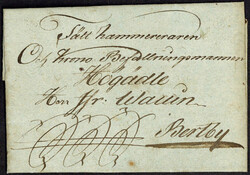 Till Kammereraren
Och Krono Befallningsmannen
Högädle
Herr Fr. Wallin
Bertby